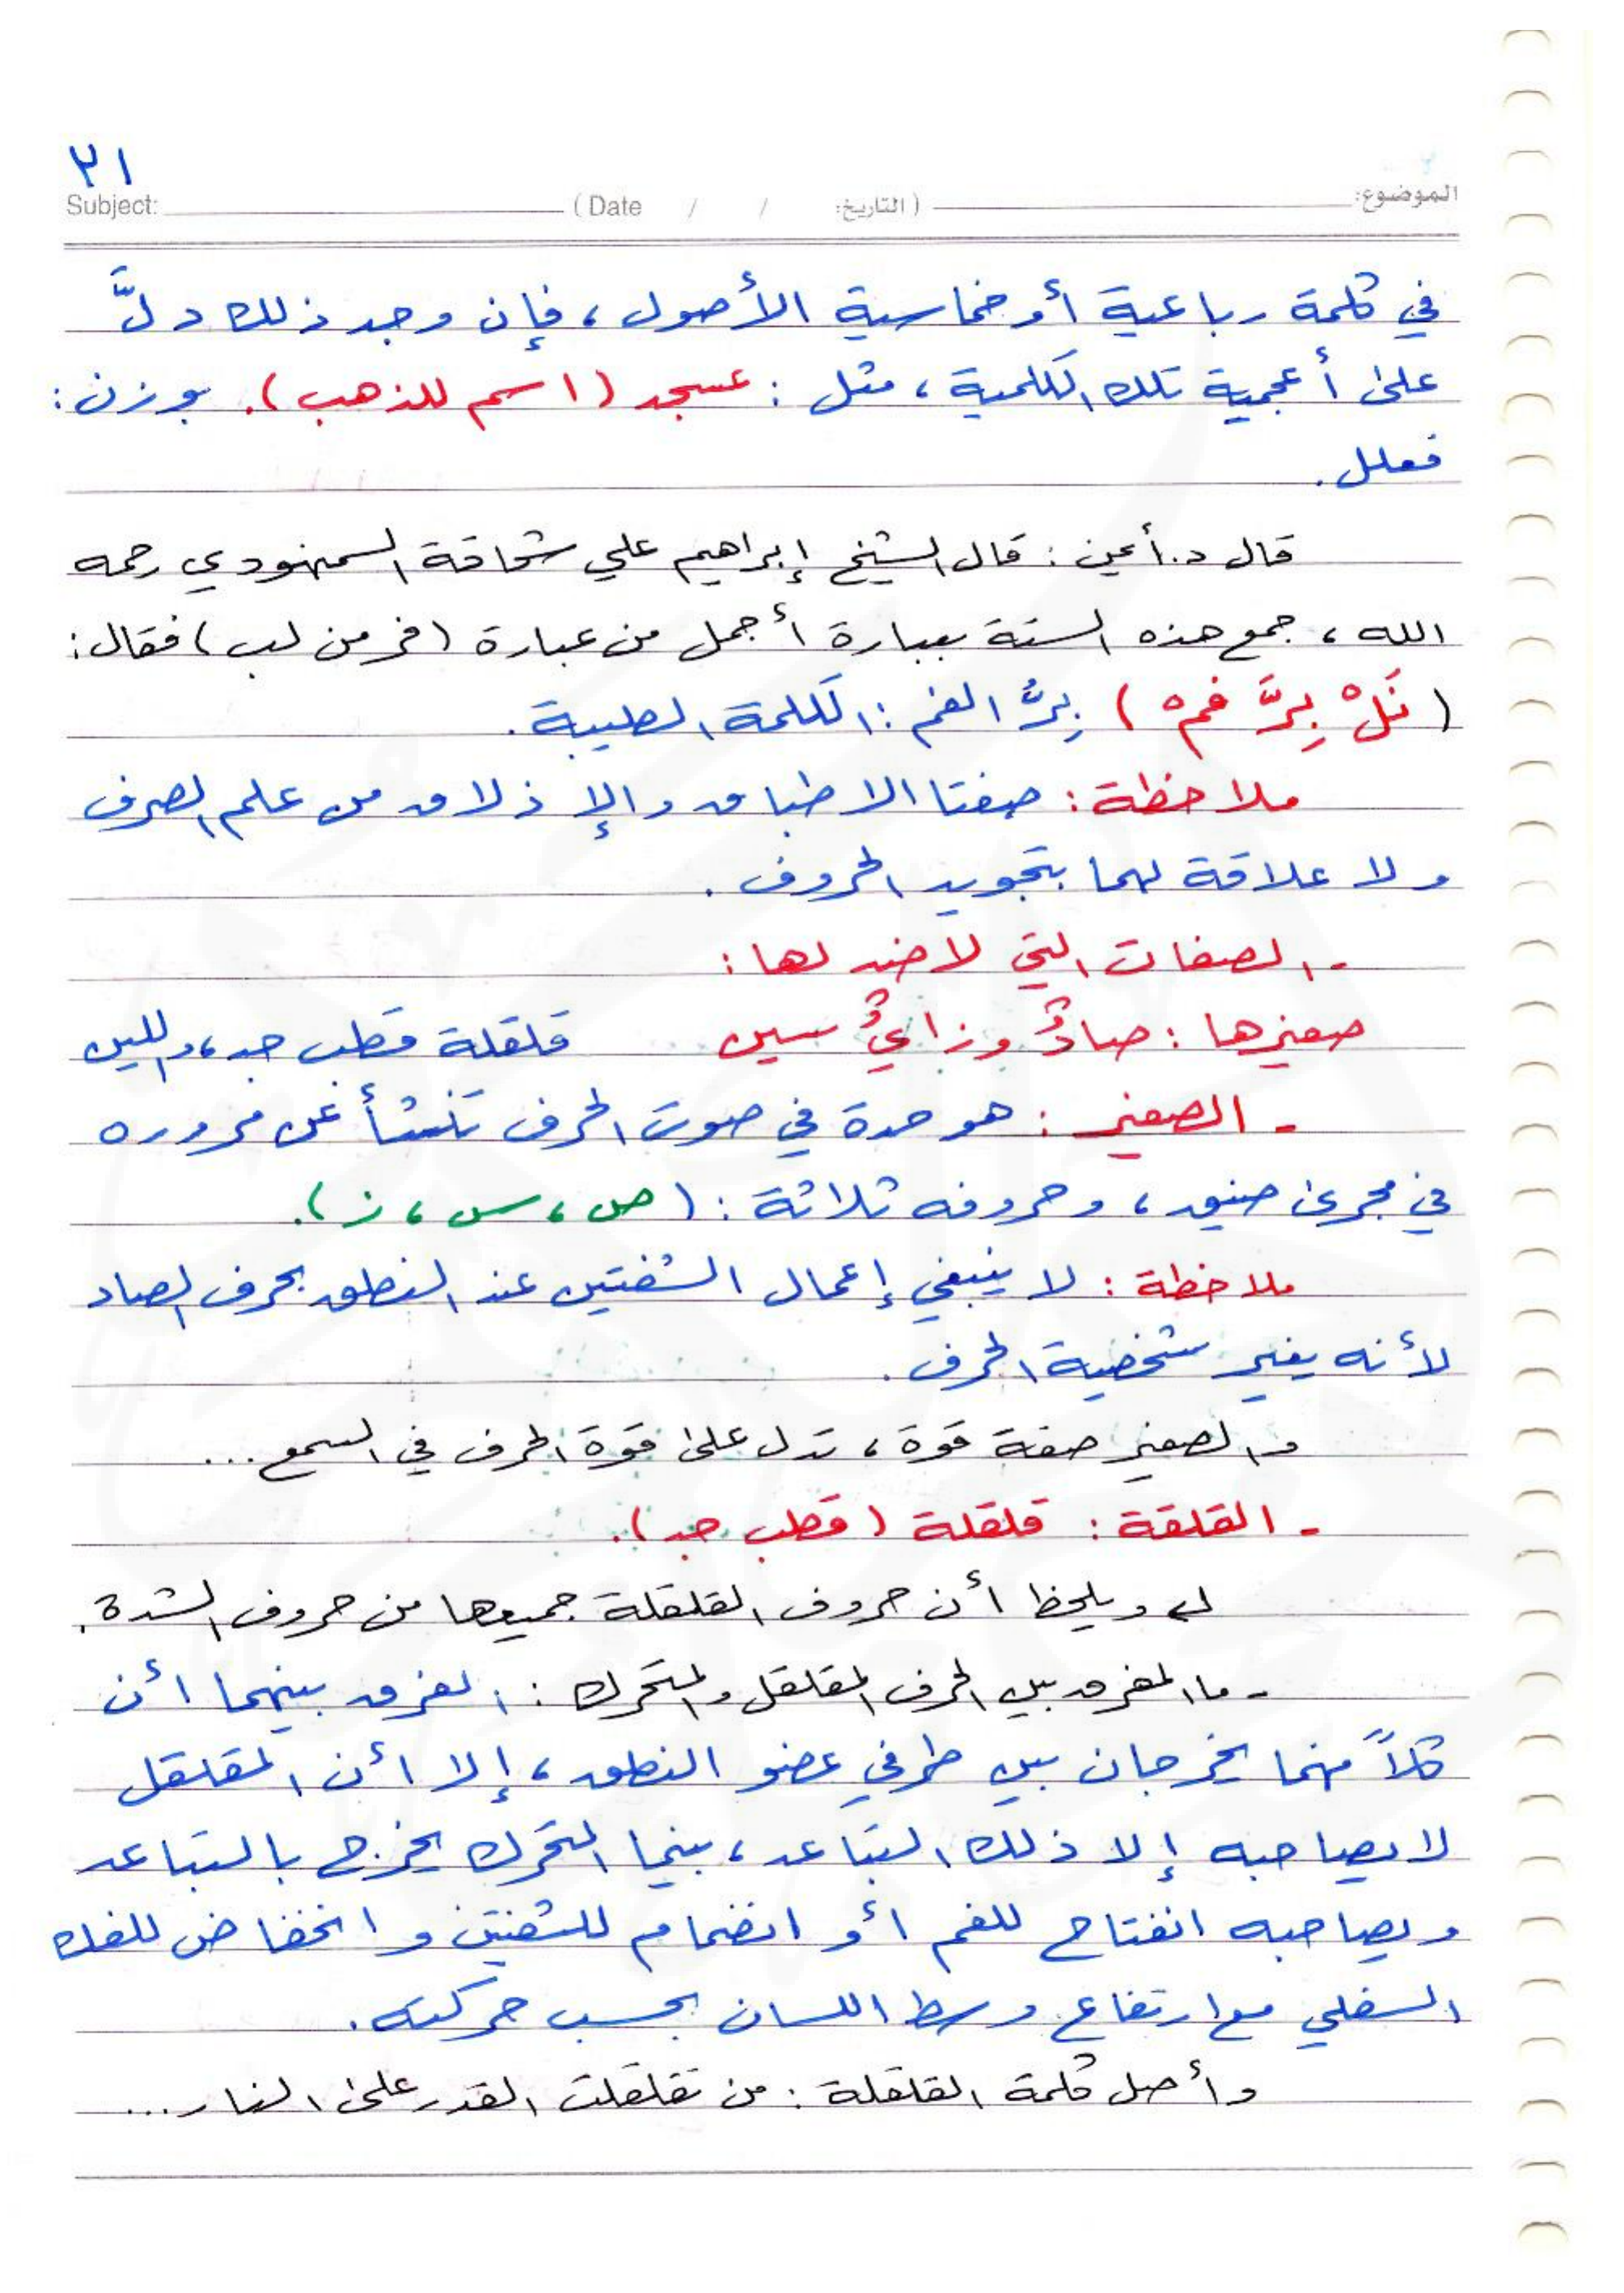 ٢١
الموضوع: (التاريخ: / / Date) Subject:
في كلمة رباعية أو خماسية الأصول ، فإن وجد ذلك دلَّ
على أعجمية تلك الكلمية ، مثل : عسجد (اسم للذهب). بوزن :
فعلل .
قال د. أيمن : قال الشيخ إبراهيم علي شحاقة السمنودي رحمه
الله ، جمع هذه الستة بعبارة أجمل من عبارة (فر من لب) فقال :
(نَلْ بِرَّ فمْ) بِرُّ الفم : الكلمة الطيبة .
ملاحظة : صفتا الاطباق والإذلاق من علم الصرف
ولا علاقة لهما بتجويد الحروف .
- الصفات التي لا ضد لها :
صفيرها : صادٌ وزايٌ سين قلقلة قطب جد ، واللين
- الصفير : هو حدة في صوت الحرف تنشأ عن مروره
في مجرى ضيق ، وحروفه ثلاثة : (ص ، س ، ز).
ملاحظة : لا ينبغي إعمال الشفتين عند النطق بحرف الصاد
لأنه يغير شخصية الحرف .
والصفير صفة قوة ، تدل على قوة الحرف في السمع ...
- القلقة : قلقلة (قطب جد).
ويلحظ أن حروف القلقلة جميعها من حروف الشدة .
- ما الفرق بين الحرف المقلقل والمتحرك : الفرق بينهما أن
كلاً منهما يخرجان بين طرفي عضو النطق ، إلا أن المقلقل
لا يصاحبه إلا ذلك التباعد ، بينما المتحرك يخرج بالتباعد
ويصاحبه انفتاح للفم أو انضمام للشفتين وانخفاض للفك
السفلي مع ارتفاع وسط اللسان بحسب حركته .
وأصل كلمة القلقلة : من تقلقلت القدر على النار ...